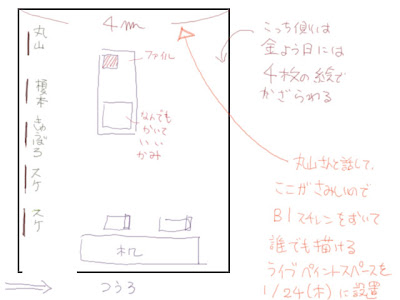 4m
丸山
榎本
きゅぽろ
スケ
スケ
ファイル
なんでも
かいて
いい
かみ
机
つうろ
こっち側は
金よう日には
4枚の絵で
かざられる
丸山さんと話して、
ここがさみしいので
B1スチレンをおいて
誰でも描ける
ライブペイントスペースを
1/24(木)に設置